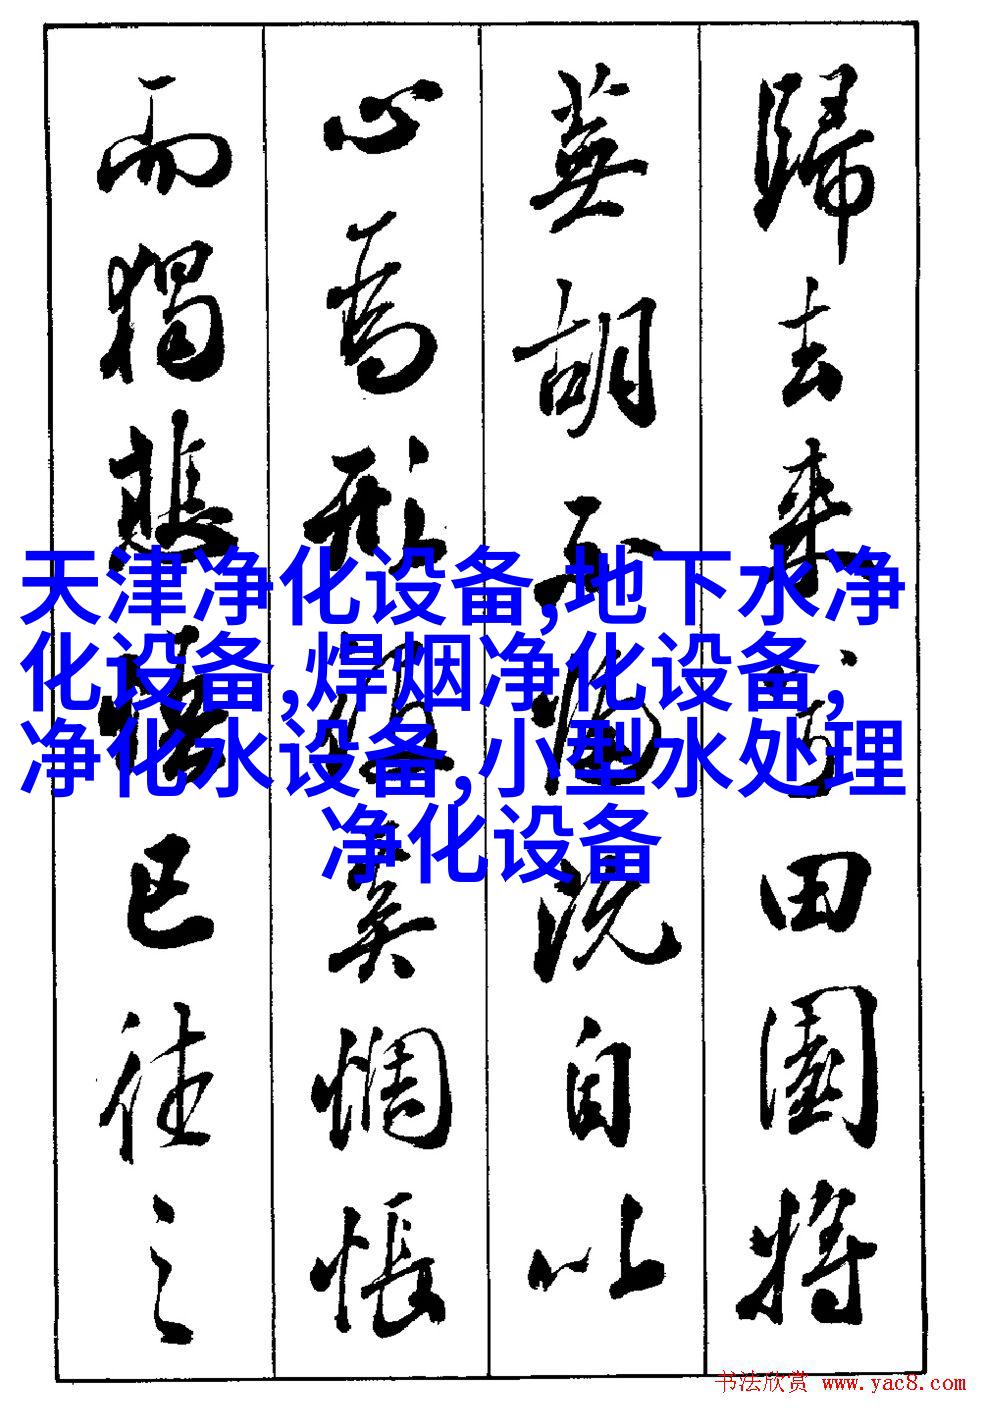 歸去来兮田園將
蕪胡不歸既自以
心為形役奚惆悵
而獨悲悟已往之
天津净化设备,地下水净
化设备,焊烟净化设备,
净化水设备,小型水处理
净化设备
书法欣赏 www.yac8.com